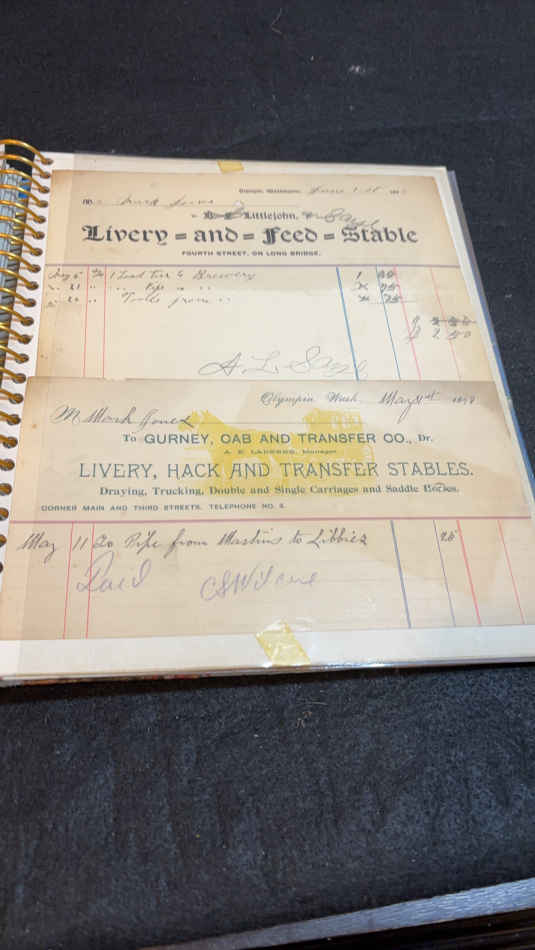 Olympia, Washington, June 1st 189
M Mark Jones
To Littlejohn, Dr.
Livery-and-Feed-Stable
FOURTH STREET, ON LONG BRIDGE.
1 Load Brewery 1
75
Tools from " " 75
$ 2 50
A. L. Sayre
Olympia, Wash. May 1st 1898
M Mark Jones
To GURNEY, CAB AND TRANSFER CO., Dr.
Manager
LIVERY, HACK AND TRANSFER STABLES.
Draying, Trucking, Double and Single Carriages and Saddle Horses.
CORNER MAIN AND THIRD STREETS. TELEPHONE NO. 4.
May 11 To Pipe from Mastins to Libbies 25
Paid CS Wilcox